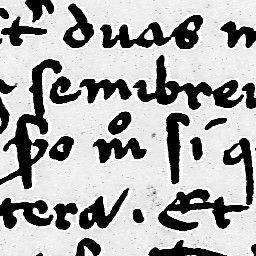 et duas m
semibrev
po mͦ si q
tera. Et